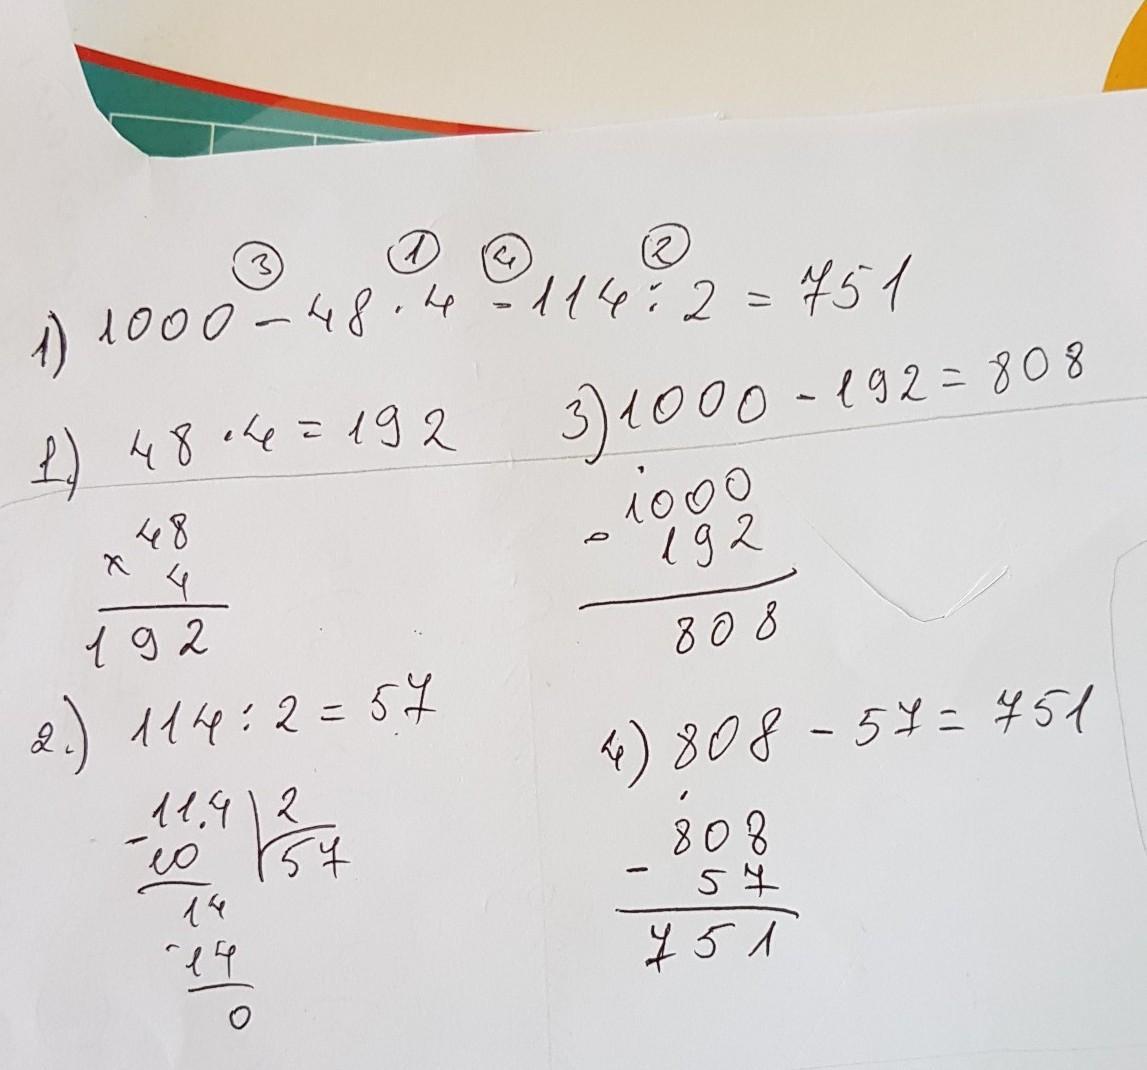 ③ ① ④ ②
1) 1000 - 48 · 4 - 114 : 2 = 751
1.) 48 · 4 = 192
× 48
4
192
2.) 114 : 2 = 57
- 11.4 | 2
10 | 57
14
- 14
0
3) 1000 - 192 = 808
- 1000
192
808
4) 808 - 57 = 751
808
- 57
751